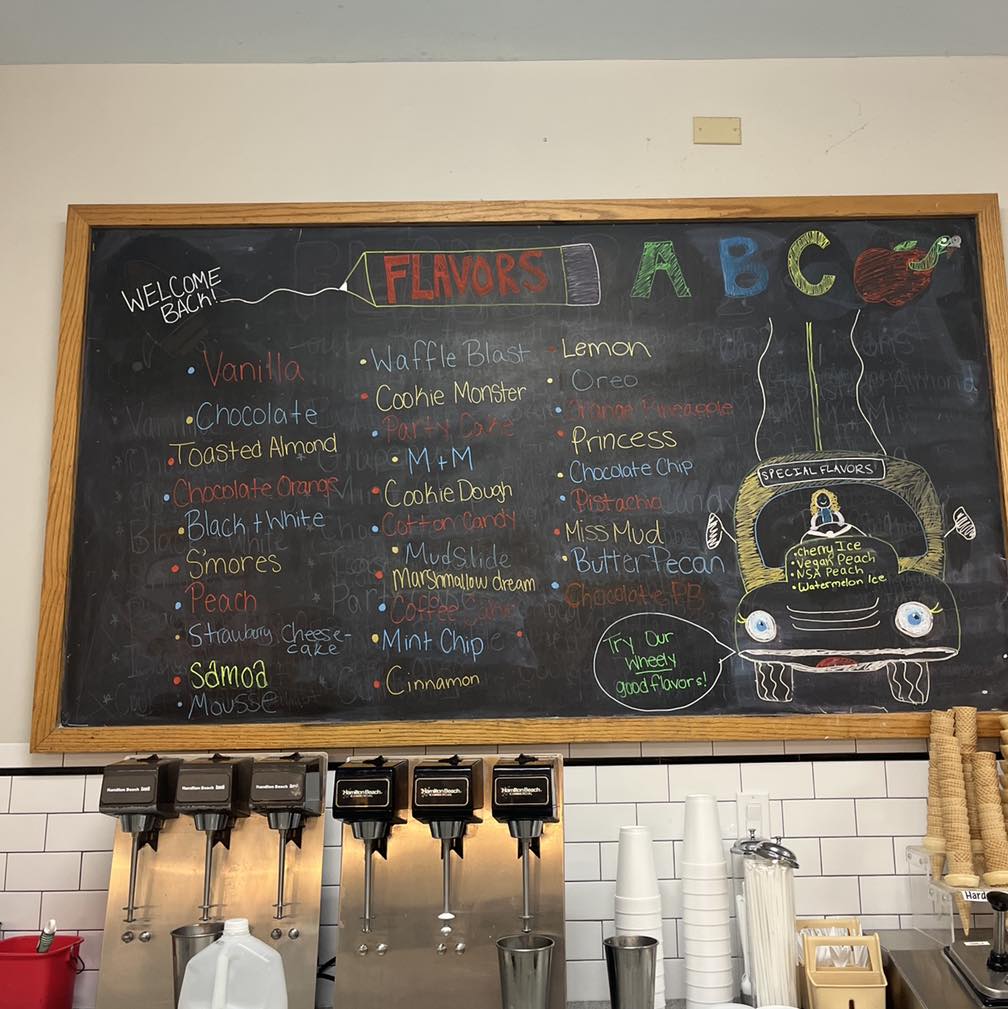 WELCOME
BACK!
FLAVORS
A B C
Vanilla
Chocolate
Toasted Almond
Chocolate Orange
Black + White
S'mores
Peach
Strawbury cheese-
cake
Samoa
Mousse
Waffle Blast
Cookie Monster
Party Cake
M + M
Cookie Dough
Cotton Candy
Mudslide
Marshmallow dream
Coffee
Mint Chip
Cinnamon
Lemon
Oreo
Orange Pineapple
Princess
Chocolate Chip
Pistachio
Miss Mud
Butter Pecan
Chocolate PB
SPECIAL FLAVORS
Cherry Ice
Vegan Peach
NSA Peach
Watermelon Ice
Try Our
Wheely
good flavors!
Hamilton Beach
Hamilton Beach
Hamilton Beach
Hamilton Beach
Hamilton Beach
Hamilton Beach
Hard